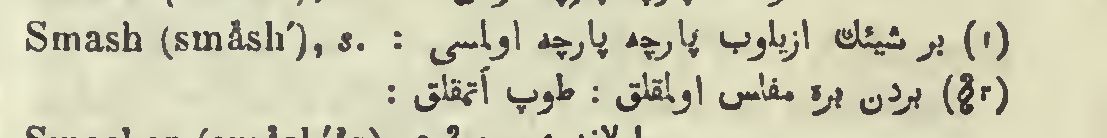 Smash (småsh′), s. : (١) بر شیئك ازیلوب پارچه پارچه اولمسی
(٢§) بردن بره مفلس اولمقلق : طوپ آتمقلق :